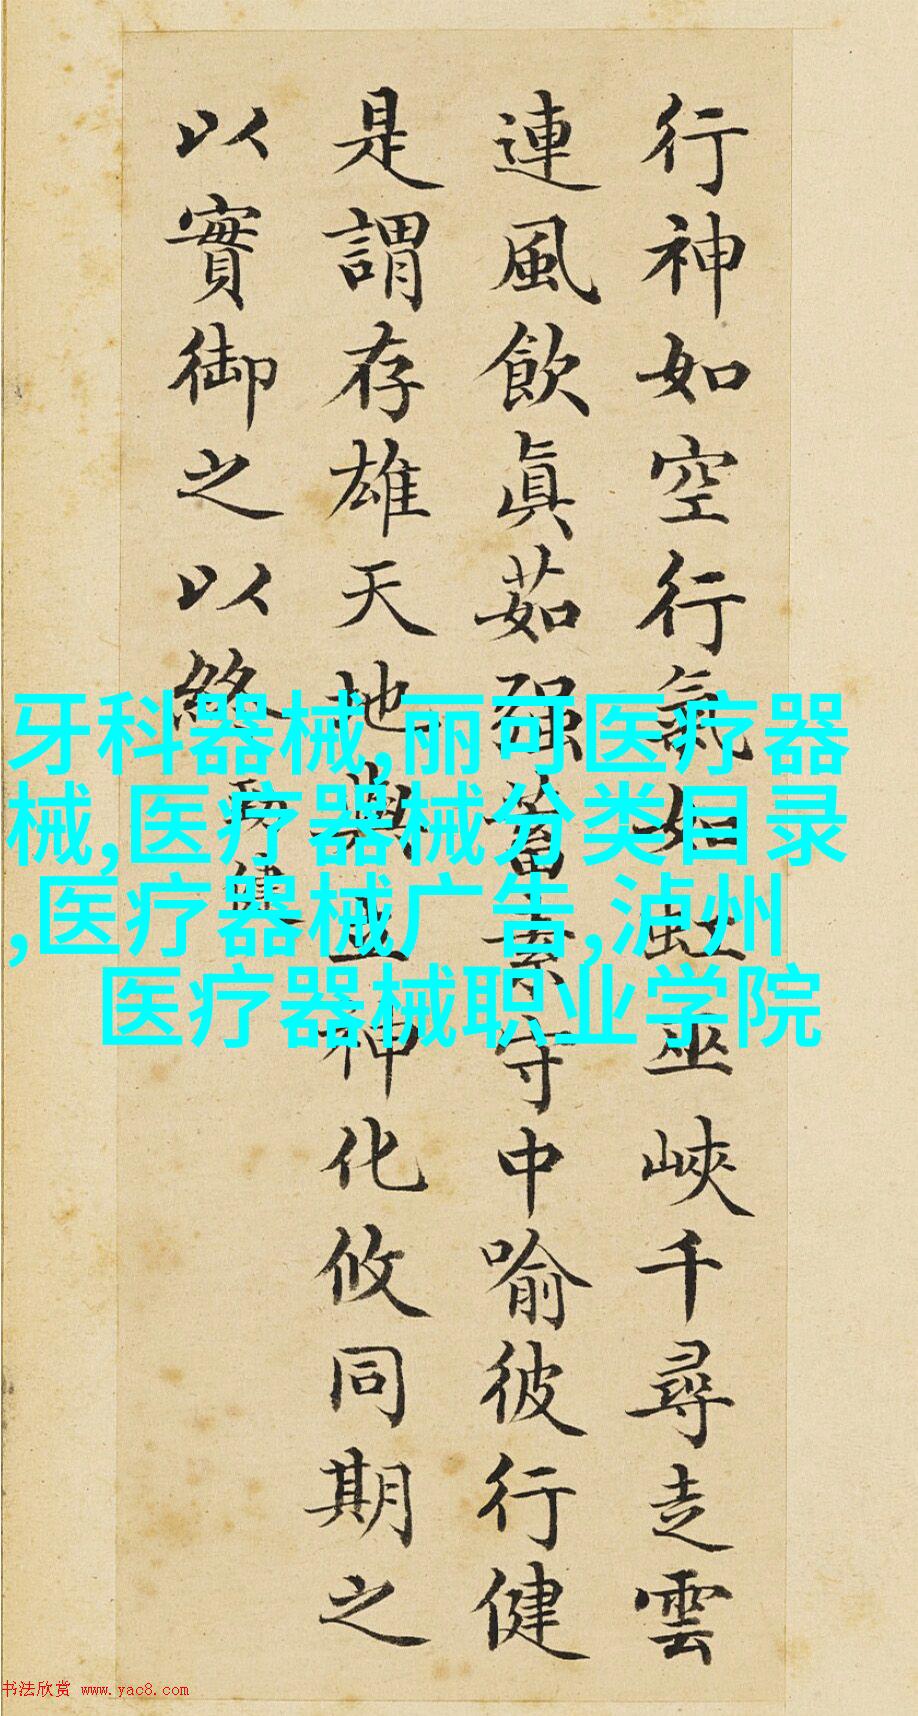 行神如空行氣如虹巫峽千尋走雲
連風飲眞茹强蓄素守中喻彼行健
是謂存雄天地與立神化攸同期之
以實御之以終
勁健
牙科器械,丽可医疗器
械,医疗器械分类目录
,医疗器械广告,泸州
医疗器械职业学院
书法欣赏 www.yac8.com